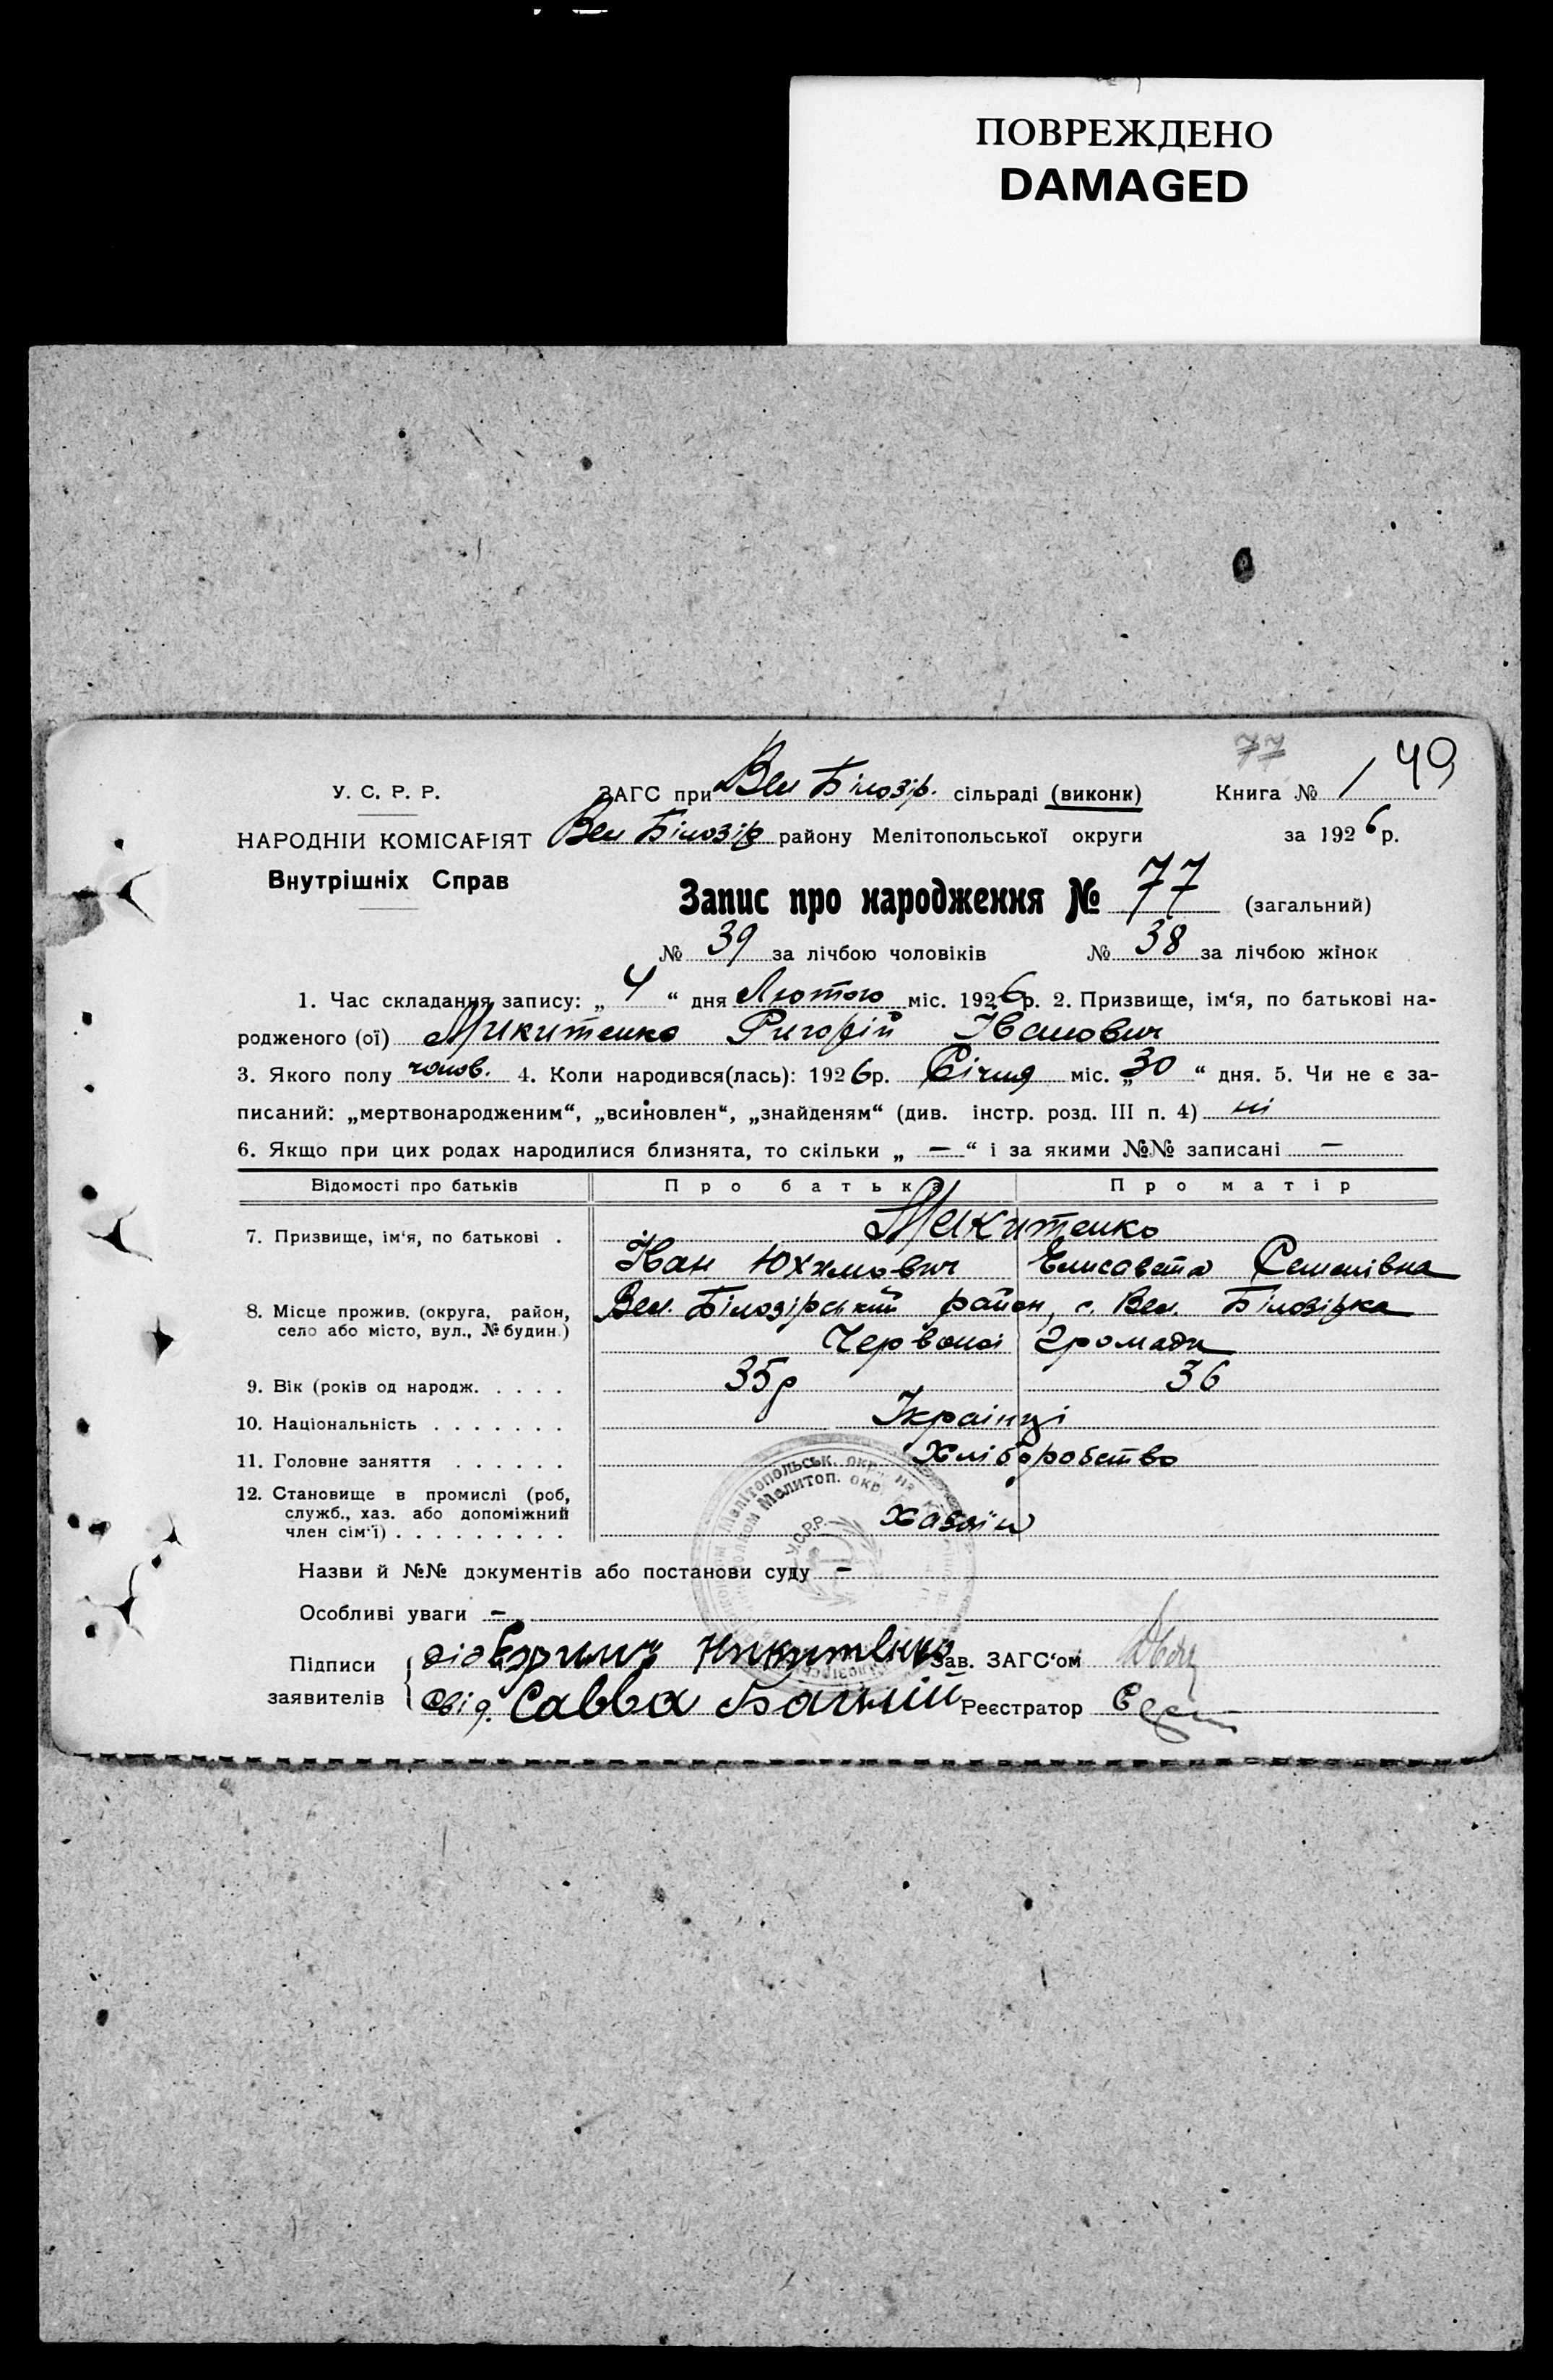 ПОВРЕЖДЕНО
DAMAGED
77
49
У. С. Р. Р.
ЗАГС при Вел Білозір. сільраді (виконк) Книга № 1
НАРОДНІЙ КОМІСАРІЯТ Вел Білозір району Мелітопольської округи за 1926 р.
Внутрішніх Справ
Запис про народження № 77 (загальний)
№ 39 за лічбою чоловіків № 38 за лічбою жінок
1. Час складання запису: „ 4 “ дня Лютого міс. 1926 р. 2. Призвище, ім‘я, по батькові на-
родженого (ої) Микитенко Ригорій Іванович
3. Якого полу чолов. 4. Коли народився(лась): 1926 р. Січня міс. „ 30 “ дня. 5. Чи не є за-
писаний: „мертвонародженим“, „всиновлен“, „знайденям“ (див. інстр. розд. III п. 4) ні
6. Якщо при цих родах народилися близнята, то скільки „ — “ і за якими №№ записані —
Відомості про батьків Про батька Про матір
7. Призвище, ім‘я, по батькові . Микитенко
Іван Юхимович Елисавета Семенівна
8. Місце прожив. (округа, район, село або місто, вул., № будин.) Вел. Білозірський район, с. Вел. Білозірка
Червоної Громади
9. Вік (років од народж. . . . . 35 р 36
10. Національність . . . . . . . Українці
11. Головне заняття . . . . . . Хліборобство
12. Становище в промислі (роб,
служб., хаз. або допоміжний
член сім‘ї) . . . . . . . . . Хазяїн
Мелітопольськ. окр.
Мелитоп. окр.
У.С.Р.Р.
Назви й №№ документів або постанови суду —
Особливі уваги —
Підписи Никитенко Зав. ЗАГС‘ом
заявителів Свід. Савва Реєстратор